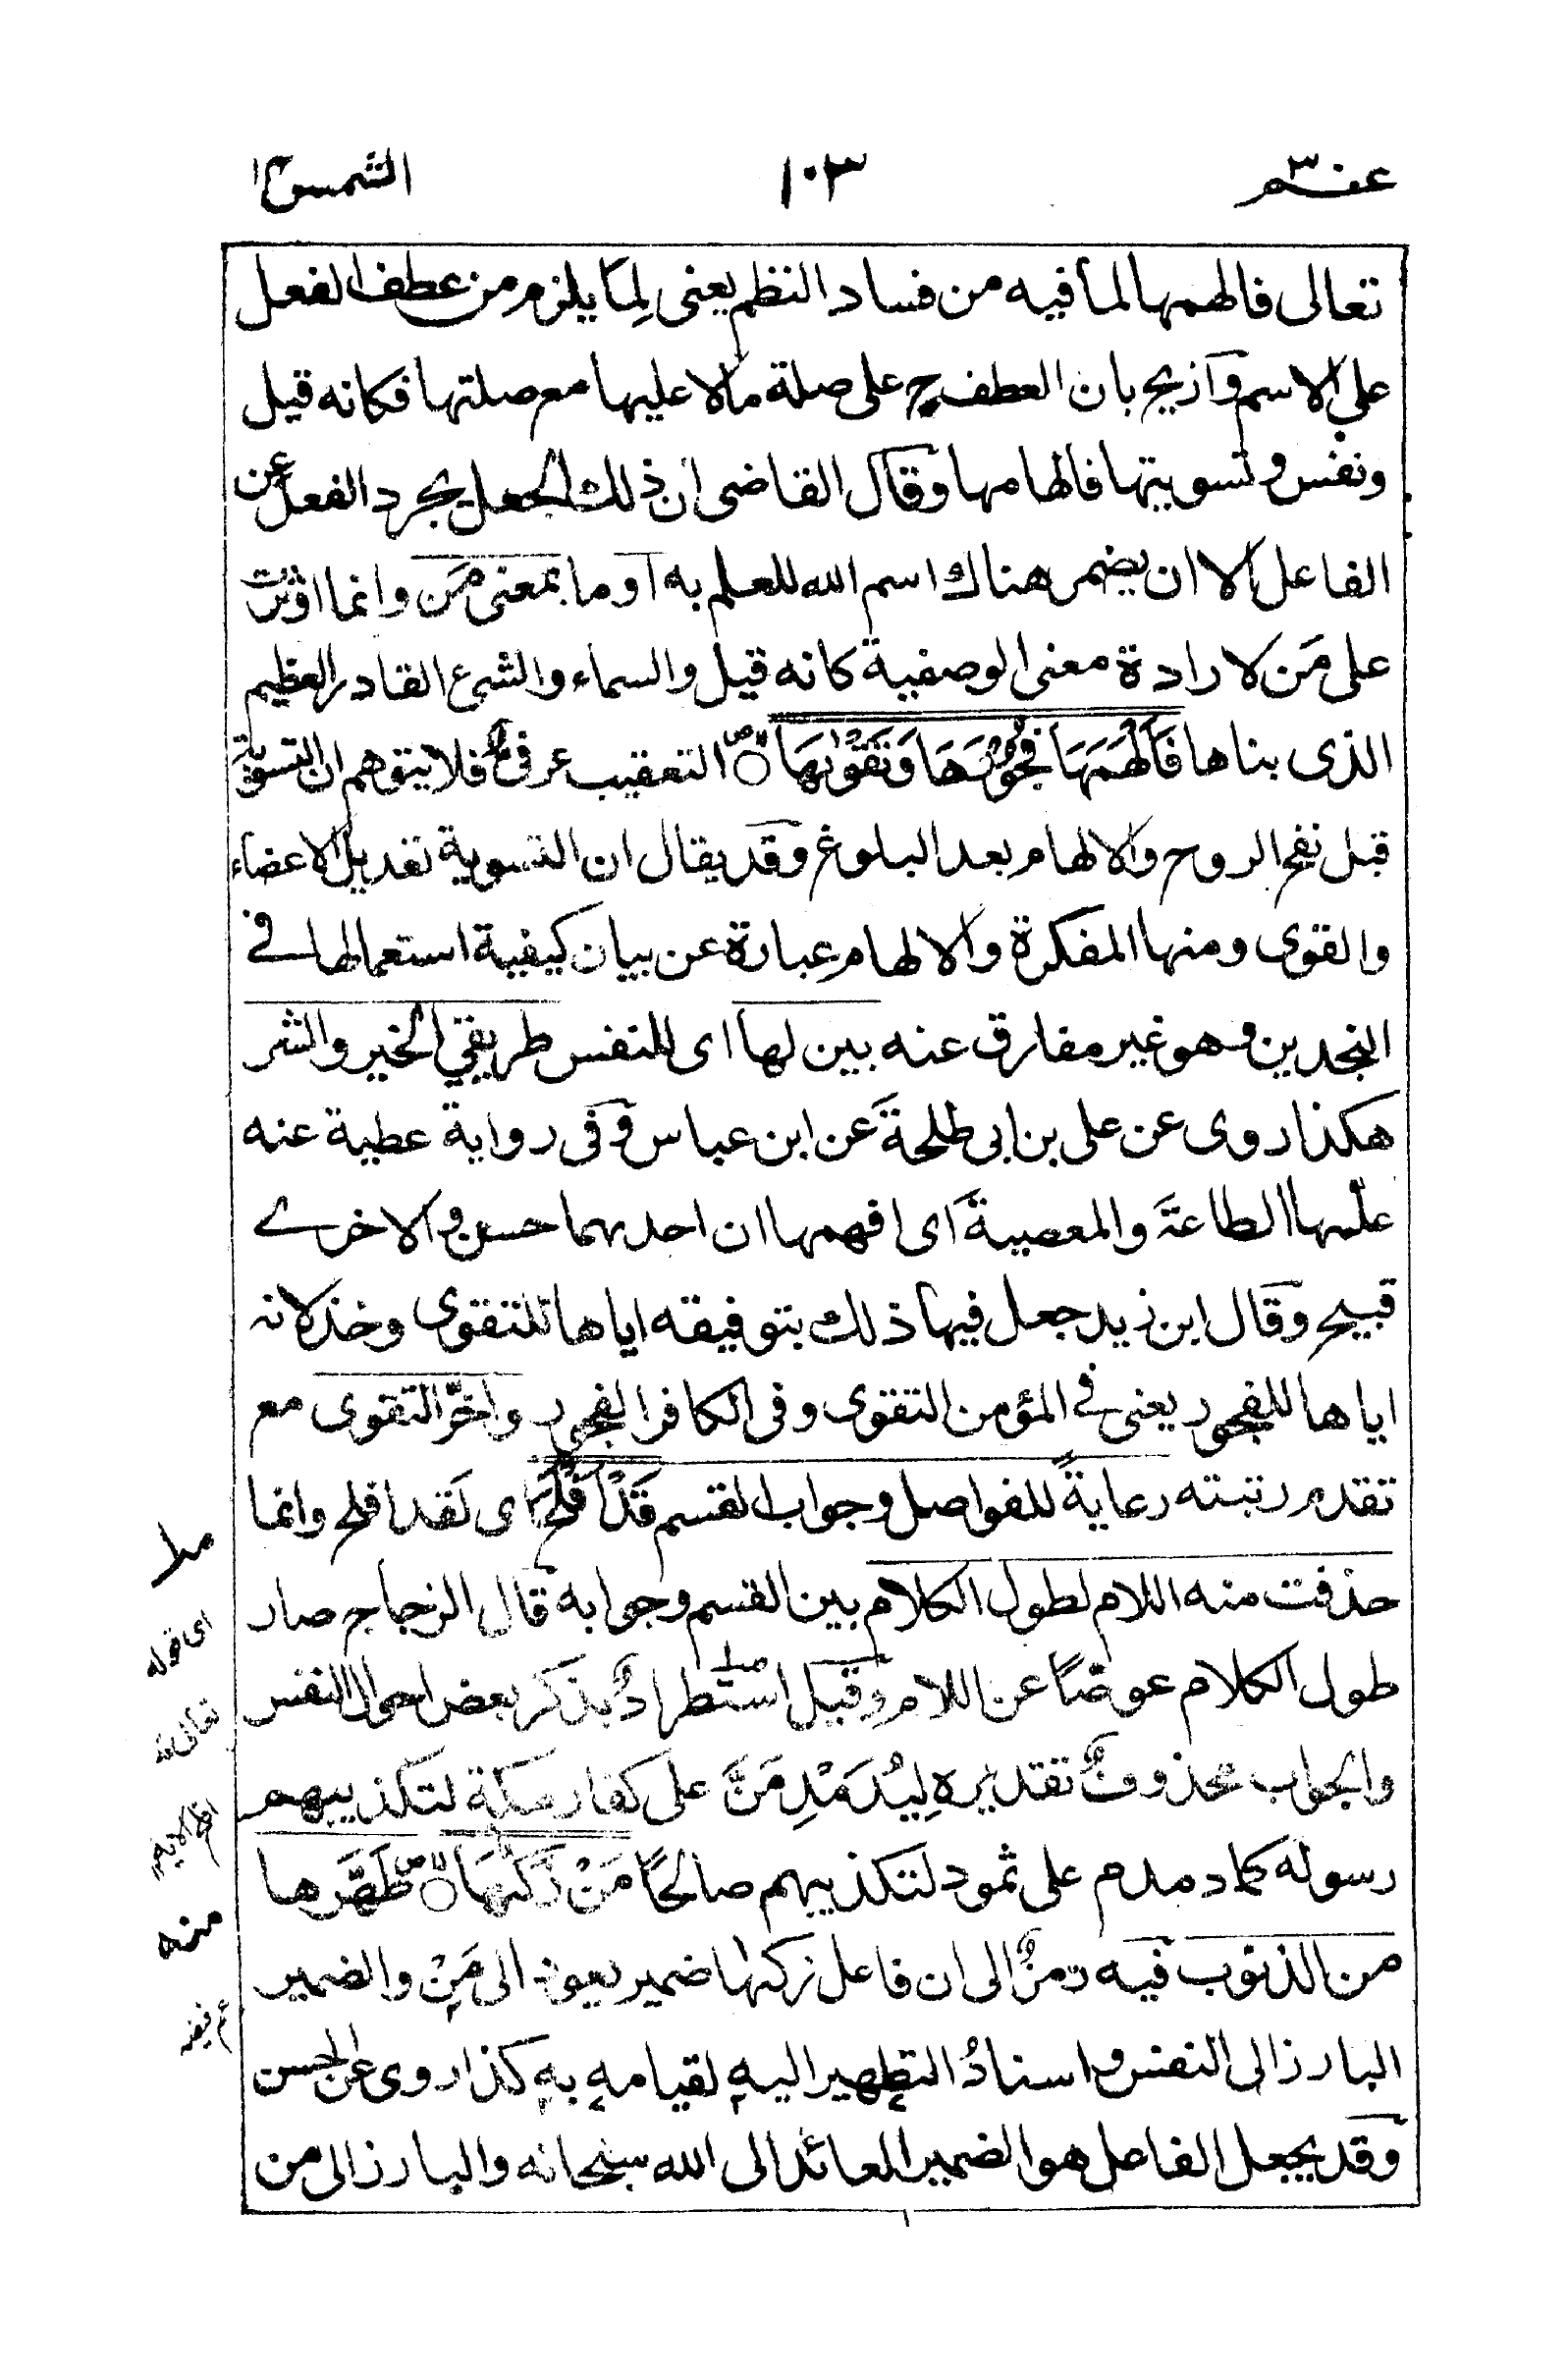 عم ٣٠
١٠٣
الشمس ٩١
تعالى فالهمها لما فيه من فساد النظم يعنى لِمَا يلزم من عطف الفعل
على الاسم وَازيح بان العطف ح على صلة ما لا عليها مع صلتها فكانه قيل
ونفس وتسويتها فالهامها وَقال القاضى ان ذلك الجعل يجرد الفعل عن
الفاعل الا ان يضمر هناك اسم الله للعلم به اَو ما بمعنى مَن وانما اوثرت
على مَن لارادة معنى الوصفية كانه قيل والسماء والشئ القادر العظيم
الذى بناها فَاَلْهَمَهَا فُجُوْرَهَا وَتَقْوٰىهَا التعقيب عرفىٌّ فلا يتوهم ان التسوية
قبل نفخ الروح والالهام بعد البلوغ وقَد يقال ان التسوية تعديل الاعضاء
والقوى ومنها المفكرة والالهام عبارة عن بيان كيفية استعمالها فى
النجدين وهو غير مفارق عنه بين لها اى للنفس طريقي الخير والشر
هكذا روى عن على بن ابى طلحةَ عن ابن عباس وَفى رواية عطية عنه
علّمها الطاعةَ والمعصيةَ اى افهمها ان احدىهما حسن والاخرى
قبيح وَقال ابن زيد جعل فيها ذلك بتوفيقه اياها للتقوى وخذلانه
اياها للفجور يعنى فى المؤمن التقوى وفى الكافر الفجور واخّر التقوى مع
تقدم رتبته رعايةً للفواصل وجواب القسم قَدْ اَفْلَحَ اى لَقد افلح وانما
حذفت منه اللام لطول الكلام بين القسم وجوابه قال الزجاج صار
طول الكلام عوضًا عن اللام وَقيل استطرادٌ بذكر بعض احوال النفس
والجواب محذوفٌ تقديره لِيُدَمْدِمَنَّ على كفار مكة لتكذيبهم
رسوله كما دمدم على ثمود لتكذيبهم صالحًا مَنْ زَكّٰىهَا طَهَّرها
من الذنوب فيه رمزٌ الى ان فاعل زكٰها ضمير يعود الى مَنْ والضمير
البارز الى النفس واسنادُ التطهير اليه لقيامه به كذا روى عن الحسن
وَقد يجعل الفاعل هو الضمير العائد الى الله سبحانه والبارز الى من
اى قوله
تعالى قد
افلح الاية
منه